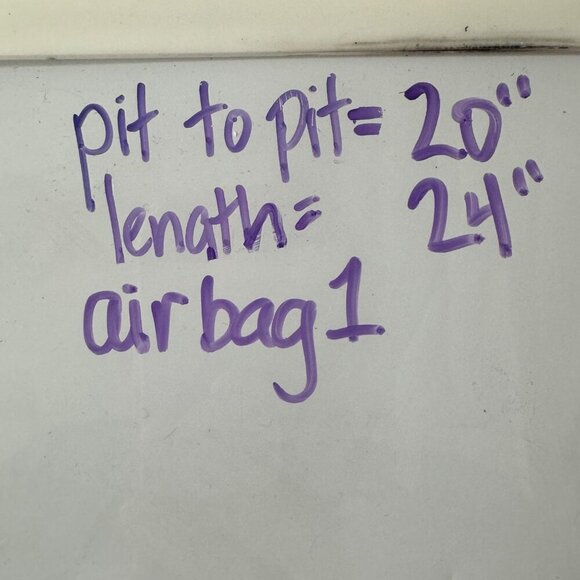 pit to pit= 20"
length= 24"
airbag1